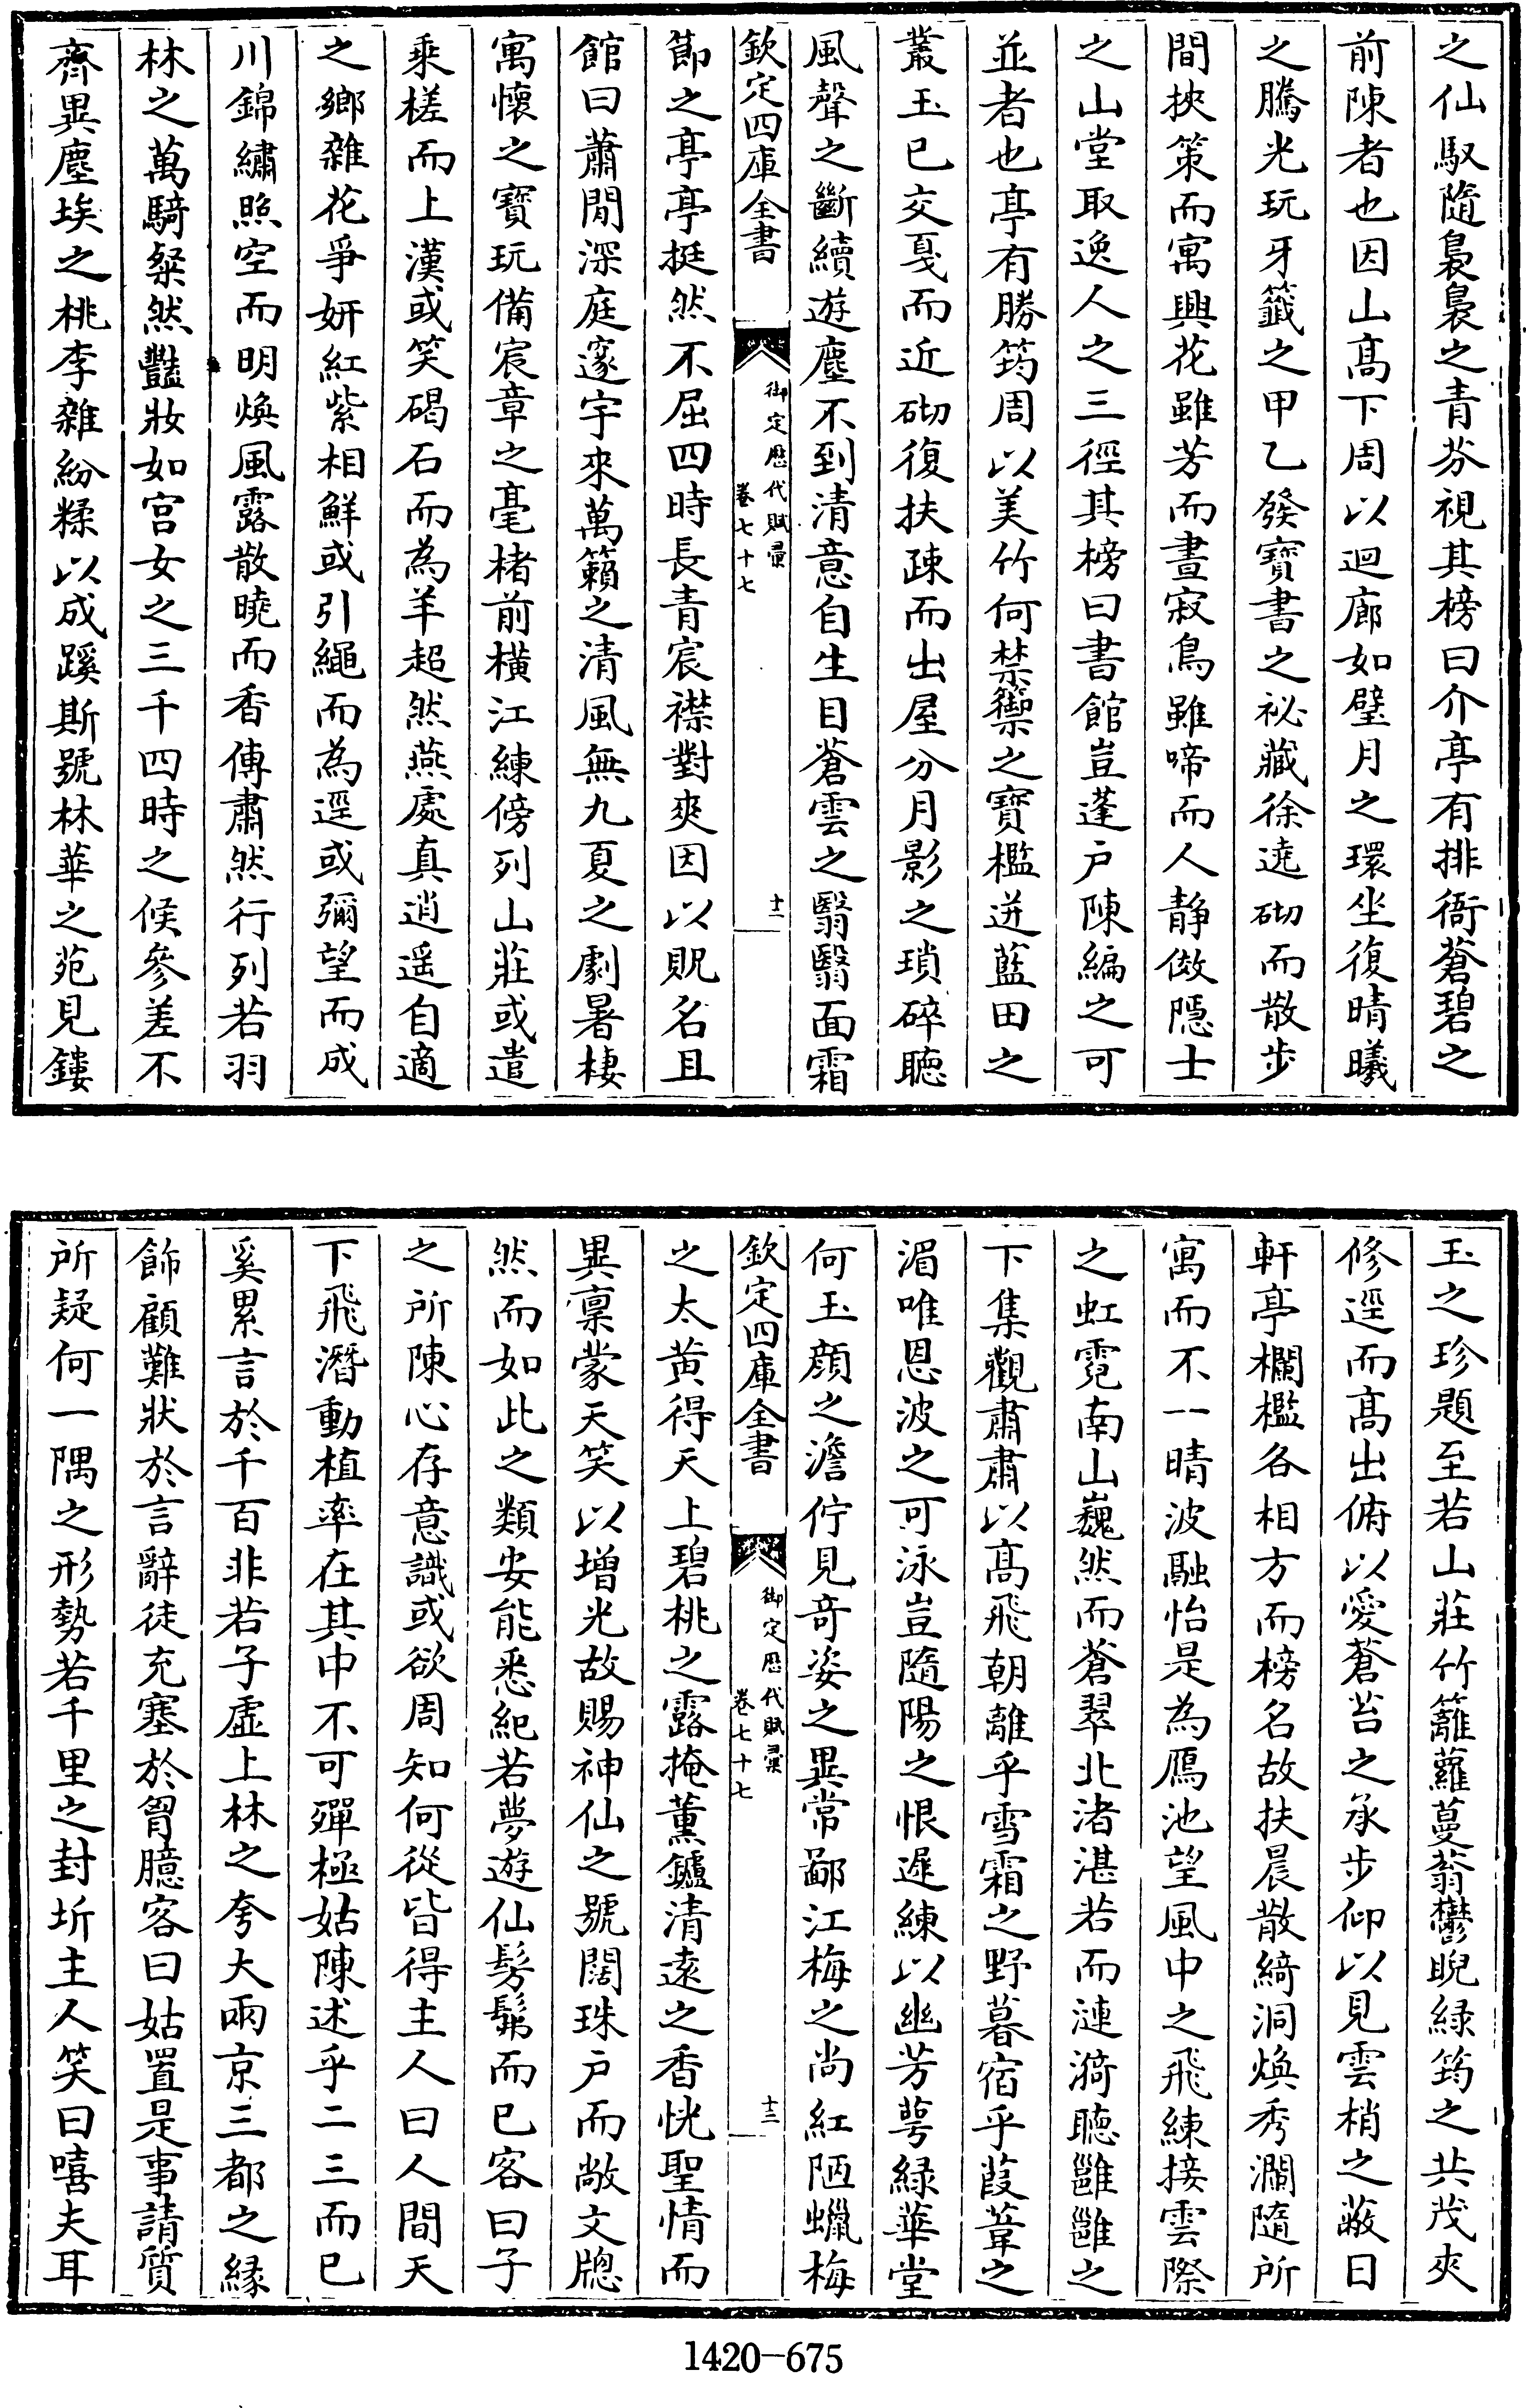 之仙馭隨裊裊之青芬視其榜曰介亭有排衙蒼碧之
前陳者也因山髙下周以迴廊如璧月之環坐復晴曦
之騰光玩牙籤之甲乙發寶書之祕藏徐遶砌而散步
間挾策而寓興花雖芳而晝寂鳥雖啼而人静倣隠士
之山堂取逸人之三徑其榜曰書館豈蓬户陳編之可
並者也亭有勝筠周以美竹何禁籞之寶檻迸藍田之
叢玉已交戛而近砌復扶疎而出屋分月影之瑣碎聽
風聲之斷續遊塵不到清意自生目蒼雲之翳翳面霜
欽定四庫全書
御定歷代賦彙
卷七十七
十一
節之亭亭挺然不屈四時長青宸襟對爽因以貺名且
館曰蕭閒深庭邃宇來萬籟之清風無九夏之劇暑棲
寓懷之寶玩備宸章之毫楮前横江練傍列山莊或遣
乘槎而上漢或笑碣石而為羊超然燕處真逍遥自適
之鄉雜花爭妍紅紫相鮮或引繩而為逕或彌望而成
川錦繡照空而明煥風露散曉而香傳肅然行列若羽
林之萬騎粲然豔妝如宫女之三千四時之候參差不
齊異塵埃之桃李雜紛糅以成蹊斯號林華之苑見鏤
玉之珍題至若山莊竹籬蘿蔓蓊鬱睨緑筠之共茂夾
修逕而髙出俯以愛蒼苔之承步仰以見雲梢之蔽日
軒亭欄檻各相方而榜名故扶晨散綺洞煥秀瀾隨所
寓而不一晴波融怡是為鴈池望風中之飛練接雲際
之虹霓南山巍然而蒼翠北渚湛若而漣漪聽雝雝之
下集觀肅肅以髙飛朝離乎雪霜之野暮宿乎葭葦之
湄唯恩波之可泳豈隨陽之恨遲練以幽芳萼緑華堂
何玉顔之澹佇見竒姿之異常鄙江梅之尚紅陋蠟梅
欽定四庫全書
御定歷代賦彙
卷七十七
十二
之太黄得天上碧桃之露掩薫鑪清逺之香恍聖情而
異禀蒙天笑以增光故賜神仙之號闊珠户而敞文牎
然而如此之類安能悉紀若夢遊仙髣髴而已客曰子
之所陳心存意識或欲周知何從皆得主人曰人間天
下飛潛動植率在其中不可殫極姑陳述乎二三而已
奚累言於千百非若子虚上林之夸大兩京三都之緣
飾顧難狀於言辭徒充塞於胷臆客曰姑置是事請質
所疑何一隅之形勢若千里之封圻主人笑曰嘻夫耳
1420-675